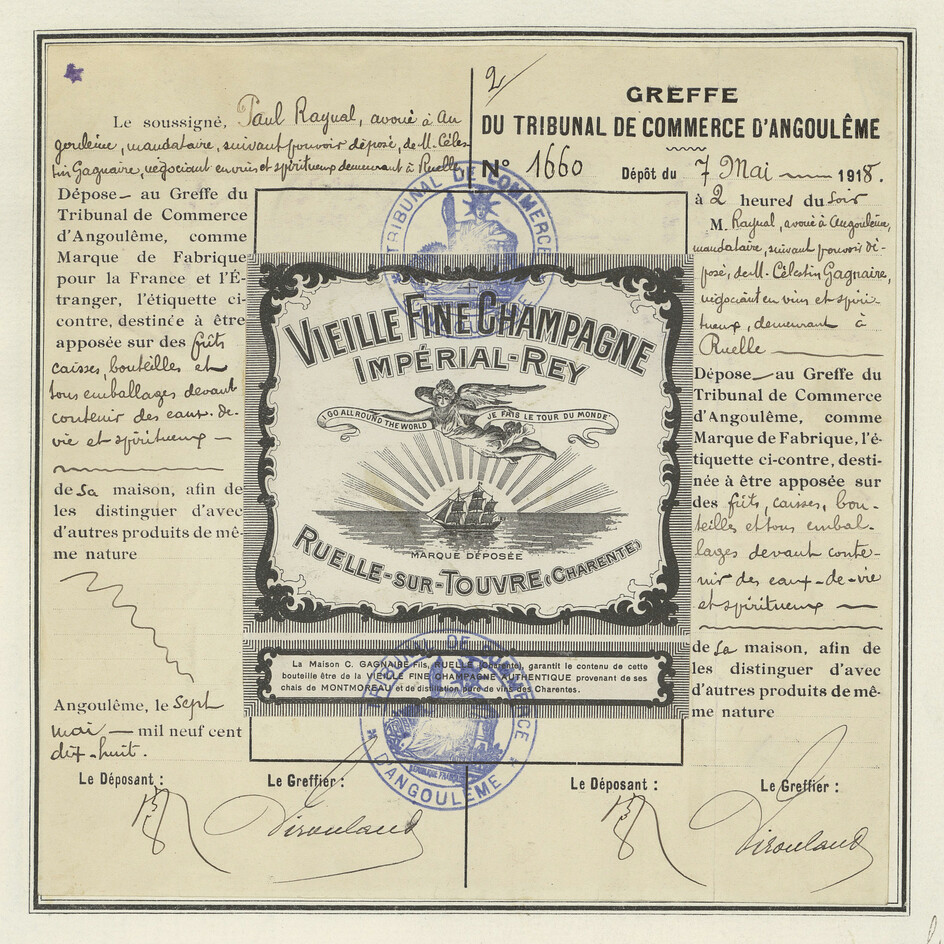 Le soussigné, Paul Raynal, avoué à An
goulême, mandataire, suivant pouvoir déposé, de M. Céles
tin Gagnaire, négociant en vins et spiritueux demeurant à Ruelle
Dépose — au Greffe du
Tribunal de Commerce
d'Angoulême, comme
Marque de Fabrique
pour la France et l'É-
tranger, l'étiquette ci-
contre, destinée à être
apposée sur des fûts
caisses, bouteilles et
tous emballages devant
contenir des eaux-de-
vie et spiritueux —
de sa maison, afin de
les distinguer d'avec
d'autres produits de mê-
me nature
Angoulême, le sept
mai — mil neuf cent
dix-huit.
Le Déposant :
Le Greffier :
Virouland
TRIBUNAL DE COMMERCE
VIEILLE FINE CHAMPAGNE
IMPÉRIAL-REY
I GO ALL ROUND THE WORLD
JE FAIS LE TOUR DU MONDE
MARQUE DÉPOSÉE
RUELLE-SUR-TOUVRE (CHARENTE)
La Maison C. GAGNAIRE Fils, RUELLE (Charente), garantit le contenu de cette
bouteille être de la VIEILLE FINE CHAMPAGNE AUTHENTIQUE provenant de ses
chais de MONTMOREAU et de distillation pure de vins des Charentes.
TRIBUNAL DE COMMERCE
D'ANGOULÊME
RÉPUBLIQUE FRANÇAISE
2/
GREFFE
DU TRIBUNAL DE COMMERCE D'ANGOULÊME
N° 1660
Dépôt du 7 Mai — 1918.
à 2 heures du soir
M. Raynal, avoué à Angoulême,
mandataire, suivant pouvoir dé-
posé, de M. Célestin Gagnaire,
négociant en vins et spiri-
tueux, demeurant à
Ruelle —
Dépose — au Greffe du
Tribunal de Commerce
d'Angoulême, comme
Marque de Fabrique, l'é-
tiquette ci-contre, desti-
née à être apposée sur
des fûts, caisses, bou-
teilles et tous embal-
lages devant conte-
nir des eaux-de-vie
et spiritueux —
de sa maison, afin de
les distinguer d'avec
d'autres produits de mê-
me nature
Le Déposant :
Le Greffier :
Virouland